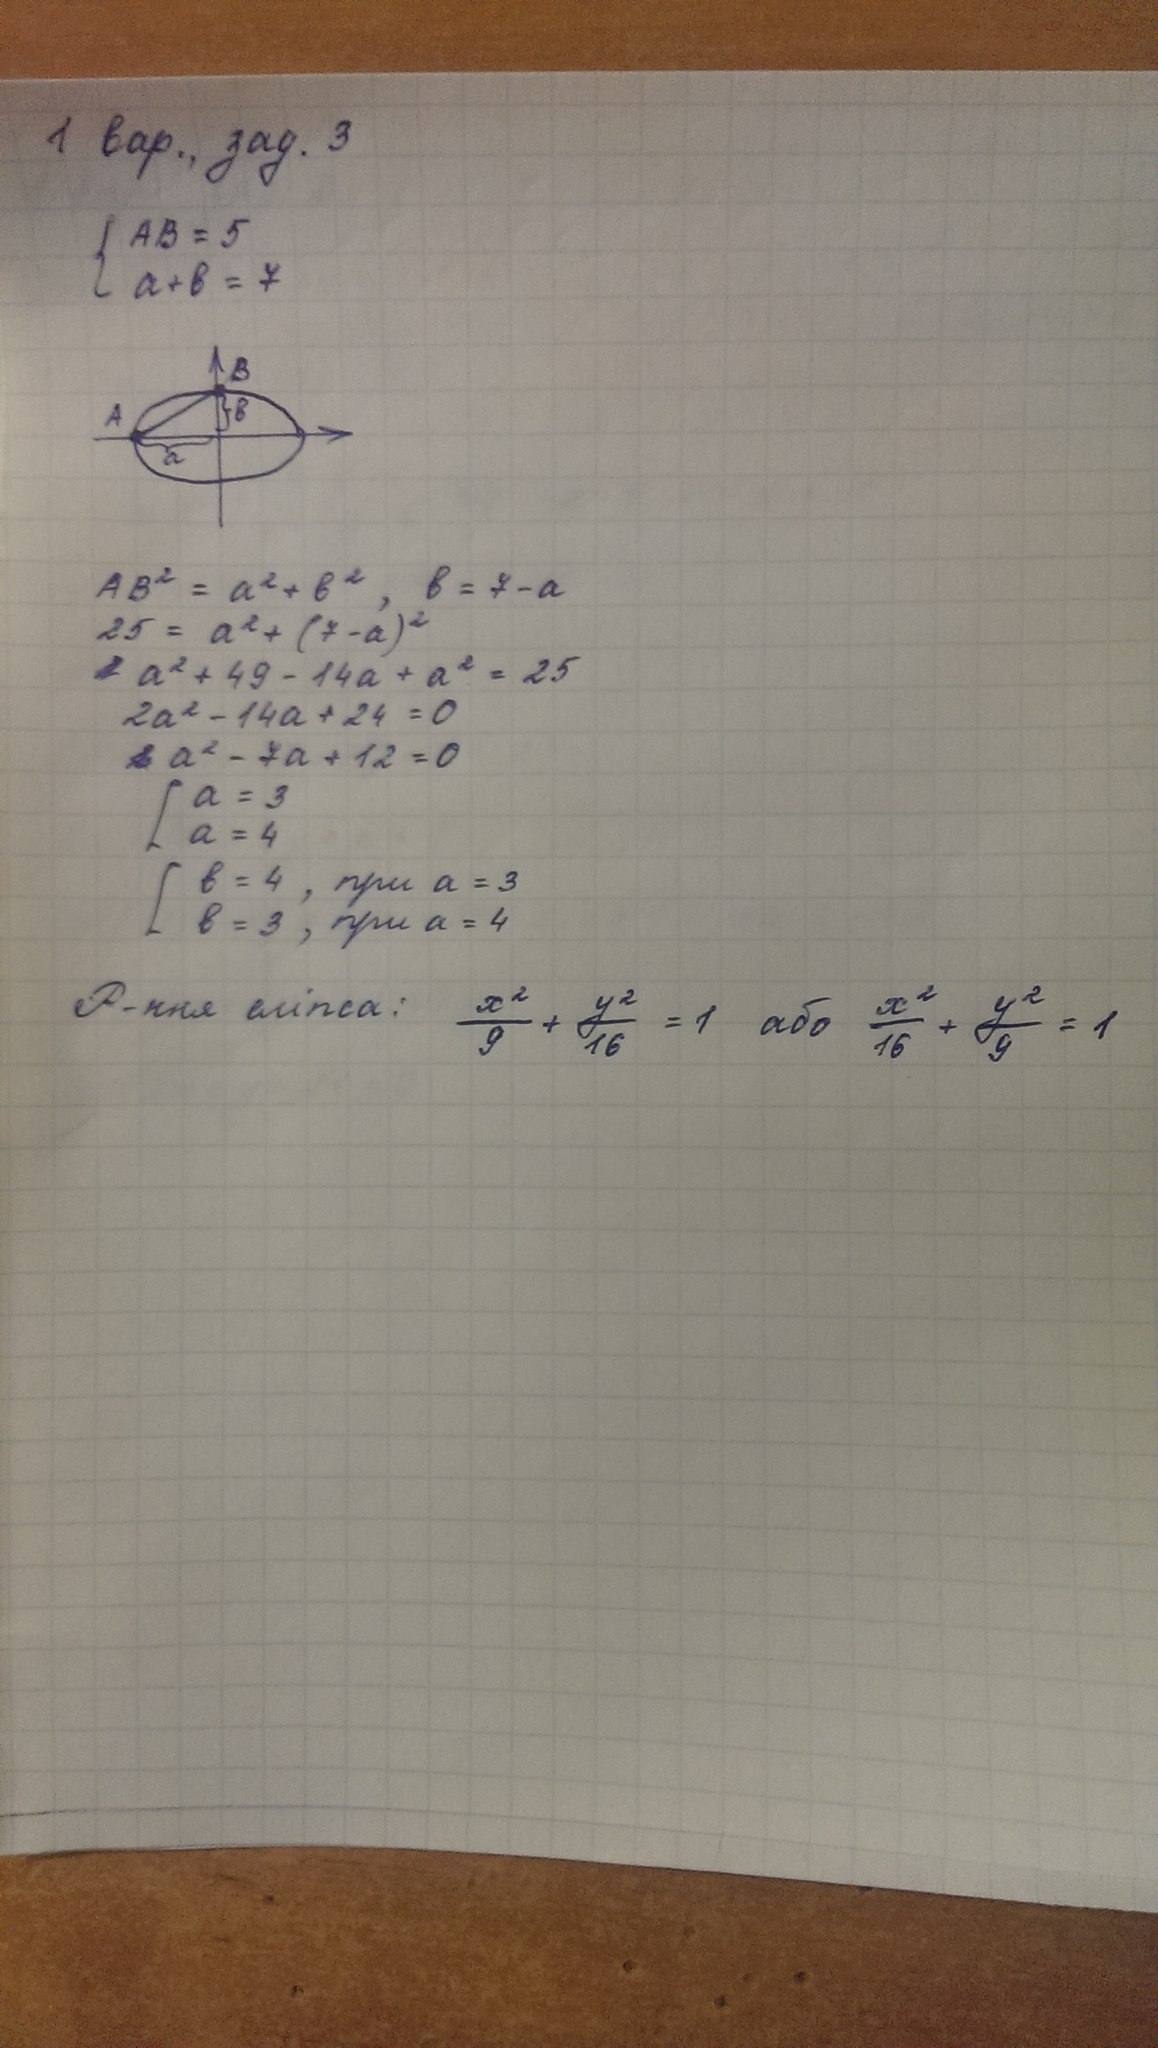 1 вар., зад. 3
{ AB = 5
a+в = 7
B
A
в
a
AB² = a² + в², в = 7-a
25 = a² + (7-a)²
a² + 49 - 14a + a² = 25
2a² - 14a + 24 = 0
a² - 7a + 12 = 0
[ a = 3
a = 4
[ в = 4, при a = 3
в = 3, при a = 4
Р-ння еліпса: x²/9 + y²/16 = 1 або x²/16 + y²/9 = 1